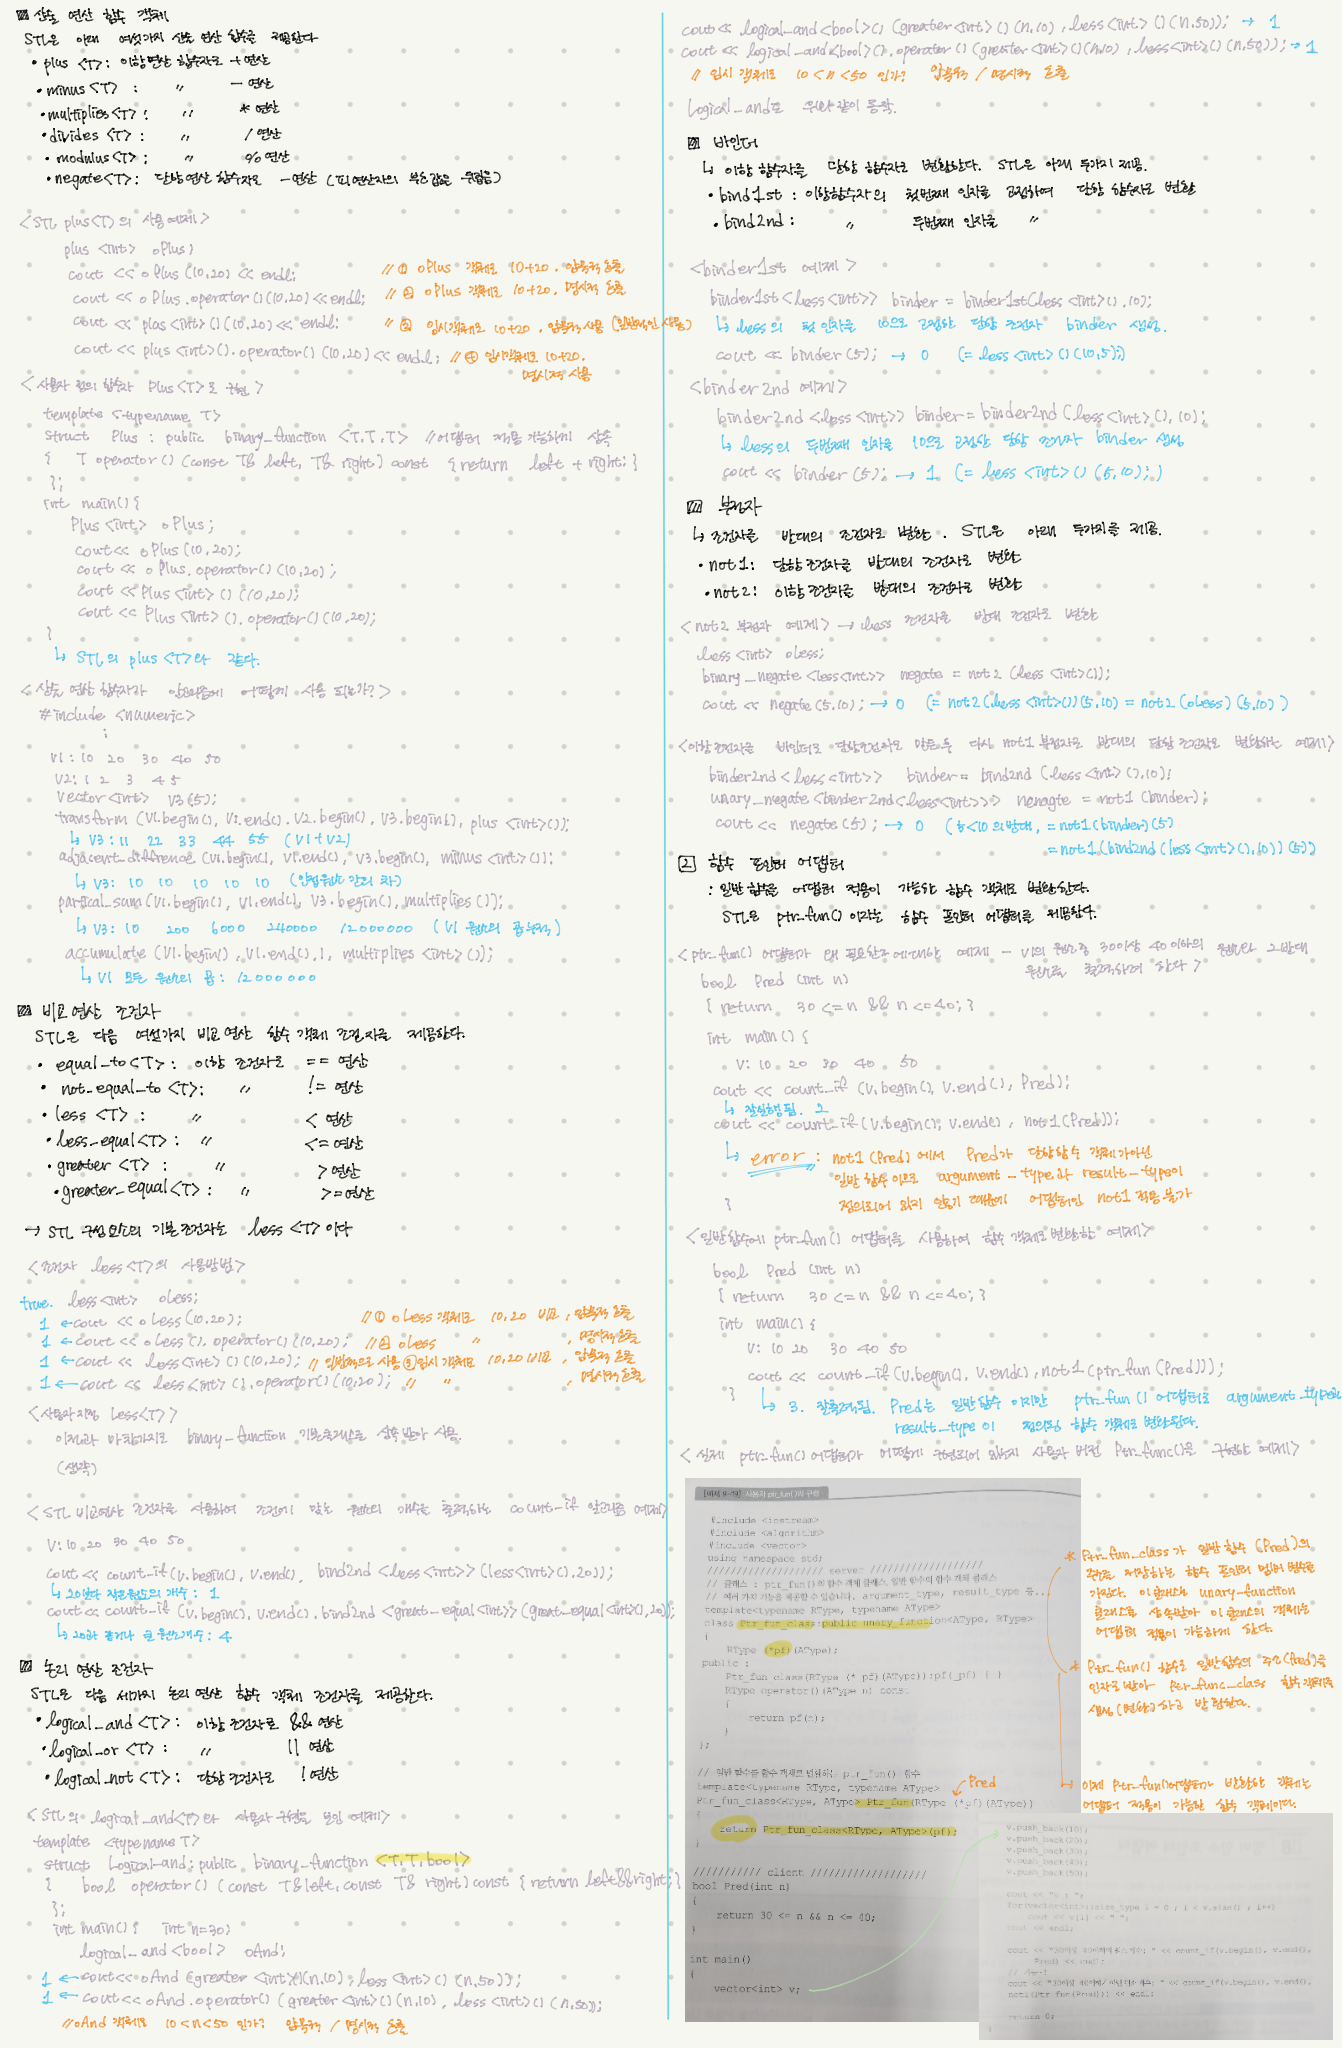 산술 연산 함수 객체
STL은 아래 여섯가지 산술 연산 함수를 제공한다
• plus <T> : 이항연산 함수자로 + 연산
• minus <T> : 〃 - 연산
• multiplies <T> : 〃 * 연산
• divides <T> : 〃 / 연산
• modulus <T> : 〃 % 연산
• negate <T> : 단항연산 함수자로 - 연산 (피연산자의 부호값을 뒤집음)
<STL plus<T>의 사용 예제>
plus <int> oPlus;
cout << oPlus(10,20) << endl; // ① oPlus 객체로 10+20. 암묵적 호출
cout << oPlus.operator()(10,20) << endl; // ② oPlus 객체로 10+20. 명시적 호출
cout << plus<int>()(10,20) << endl; // ③ 임시객체로 10+20. 암묵적 사용 (일반적인 사용)
cout << plus<int>().operator()(10,20) << endl; // ④ 임시객체로 10+20.
명시적 사용
<사용자 정의 함수자 Plus<T>로 구현>
template <typename T>
struct Plus : public binary_function <T,T,T> //어댑터 적용 가능하게 상속
{ T operator() (const T& left, T& right) const {return left + right; }
};
int main() {
Plus<int> oPlus;
cout << oPlus(10,20);
cout << oPlus.operator()(10,20);
cout << Plus<int>()(10,20);
cout << Plus<int>().operator()(10,20);
}
↳ STL의 plus<T>와 같다.
<산술 연산 함수자가 알고리즘에 어떻게 사용 되는가?>
#include <numeric>
:
V1: 10 20 30 40 50
V2: 1 2 3 4 5
Vector<int> V3(5);
transform (V1.begin(), V1.end(), V2.begin(), V3.begin(), plus<int>());
↳ V3: 11 22 33 44 55 (V1+V2)
adjacent_difference (V1.begin(), V1.end(), V3.begin(), minus<int>());
↳ V3: 10 10 10 10 10 (인접원소 간의 차)
partical_sum(V1.begin(), V1.end(), V3.begin(), multiplies());
↳ V3: 10 200 6000 240000 12000000 (V1 원소의 곱 누적)
accumulate (V1.begin(), V1.end(), 1, multiplies<int>());
↳ V1 모든 원소의 곱 : 12000000
비교 연산 조건자
STL은 다음 여섯가지 비교 연산 함수 객체 조건자를 제공한다.
• equal_to<T> : 이항 조건자로 == 연산
• not_equal_to <T> : 〃 != 연산
• less <T> : 〃 < 연산
• less_equal<T> : 〃 <= 연산
• greater <T> : 〃 > 연산
• greater_equal<T> : 〃 >= 연산
→ STL 구성 요소의 기본 조건자는 less <T> 이다
<조건자 less<T>의 사용방법>
true. less<int> oless;
1 ← cout << oLess(10,20); // ① oLess 객체로 10,20 비교, 암묵적 호출
1 ← cout << oless().operator()(10,20); // ② oless 〃 , 명시적 호출
1 ← cout << less<int>()(10,20); // 일반적으로 사용 ③임시 객체로 10,20 비교, 암묵적 호출
1 ← cout << less<int>().operator()(10,20); // 〃 , 명시적 호출
<사용자 지정 less<T>>
이전과 마찬가지로 binary_function 기본클래스로 상속받아 사용.
(생략)
<STL 비교연산 조건자를 사용하여 조건에 맞는 원소의 개수를 출력하는 count_if 알고리즘 예제>
V: 10 20 30 40 50
cout << count_if(v.begin(), v.end(), bind2nd <less<int>>(less<int>(),20));
↳ 20보다 작은 원소의 개수 : 1
cout << count_if (v.begin(), v.end(), bind2nd <great_equal<int>>(great_equal<int>(),20));
↳ 20과 같거나 큰 원소개수 : 4
논리 연산 조건자
STL은 다음 세가지 논리 연산 함수 객체 조건자를 제공한다.
• logical_and <T> : 이항 조건자로 && 연산
• logical_or <T> : 〃 || 연산
• logical_not <T> : 단항 조건자로 ! 연산
<STL의 logical_and<T>와 사용자 구현을 보인 예제>
template <typename T>
struct Logical_and : public binary_function <T,T,bool>
{ bool operator() (const T& left, const T& right) const { return left&&right; }
};
int main() { int n=30;
logical_and <bool> oAnd;
1 ← cout << oAnd (greater<int>()(n,10), less<int>()(n,50));
1 ← cout << oAnd.operator() (greater<int>()(n,10), less<int>()(n,50));
//oAnd 객체로 10<n<50 인가? 암묵적 / 명시적 호출
cout << logical_and<bool>() (greater<int>()(n,10), less<int>()(n,50)); → 1
cout << logical_and<bool>().operator() (greater<int>()(n,10), less<int>()(n,50)); → 1
// 임시 객체로 10<n<50 인가? 암묵적 / 명시적 호출
Logical_and도 위와 같이 동작.
바인더
↳ 이항 함수자를 단항 함수자로 변환한다. STL은 아래 두가지 제공.
• bind1st : 이항함수자의 첫번째 인자를 고정하여 단항 함수자로 변환
• bind2nd : 〃 두번째 인자를 〃
<binder1st 예제>
binder1st<less<int>> binder = binder1st(less<int>(),10);
↳ less의 첫 인자를 10으로 고정한 단항 조건자 binder 생성.
cout << binder(5); → 0 (= less<int>()(10,5);)
<binder2nd 예제>
binder2nd <less<int>> binder = binder2nd(less<int>(),10);
↳ less의 두번째 인자를 10으로 고정한 단항 조건자 binder 생성
cout << binder(5); → 1 (= less<int>()(5,10);)
부정자
↳ 조건자를 반대의 조건자로 변환. STL은 아래 두가지를 제공.
• not1: 단항 조건자를 반대의 조건자로 변환
• not2: 이항 조건자를 반대의 조건자로 변환
<not2 부정자 예제> → less 조건자를 반대 조건자로 변환
less<int> oless;
binary_negate<less<int>> negate = not2(less<int>());
cout << negate(5,10); → 0 (= not2(less<int>())(5,10) = not2(oless)(5,10))
<이항조건자를 바인더로 단항조건자로 만든 후 다시 not1 부정자로 반대의 단항 조건자로 변환하는 예제>
binder2nd<less<int>> binder = bind2nd(less<int>(),10);
unary_negate<binder2nd<less<int>>> nenagte = not1(binder);
cout << negate(5); → 0 (5<10의 반대, = not1(binder)(5)
= not1(bind2nd(less<int>(),10))(5))
2 함수 포인터 어댑터
: 일반 함수를 어댑터 적용이 가능한 함수 객체로 변환한다.
STL은 ptr_fun() 이라는 함수 포인터 어댑터를 제공한다.
<ptr_fun() 어댑터가 왜 필요한지에 대한 예제 - V의 원소중 30이상 40이하의 원소와 그 반대
원소를 출력하려 한다>
bool Pred (int n)
{ return 30 <= n && n <= 40; }
int main() {
V: 10 20 30 40 50
cout << count_if (v.begin(), v.end(), Pred);
↳ 잘실행됨. 2
cout << count_if(v.begin(), v.end(), not1(Pred));
↳ error : not1(Pred)에서 Pred가 단항함수 객체가아닌
일반 함수이므로 argument_type과 result_type이
} 정의되어 있지 않기 때문에 어댑터인 not1 적용 불가
<일반함수에 ptr_fun() 어댑터를 사용하여 함수 객체로 변환한 예제>
bool Pred (int n)
{ return 30 <= n && n <= 40; }
int main() {
V: 10 20 30 40 50
cout << count_if(v.begin(), v.end(), not1(ptr_fun(Pred)));
} ↳ 3. 잘출력됨. Pred는 일반 함수 이지만 ptr_fun() 어댑터로 argument_type과
result_type이 정의된 함수 객체로 변환된다.
<실제 ptr_fun() 어댑터가 어떻게 구현되어 있는지 사용자 버전 Ptr_func()을 구현한 예제>
[예제 9-19] 사용자 ptr_fun()의 구현
#include <iostream>
#include <algorithm>
#include <vector>
using namespace std;
//////////////////// server ////////////////////
// 클래스 : ptr_fun()의 함수 객체 클래스, 일반 함수의 함수 객체 클래스
// 여러 가지 기능을 제공할 수 있습니다. argument_type, result_type 등...
template<typename RType, typename AType>
class Ptr_fun_class:public unary_function<AType, RType>
{
RType (*pf)(AType);
public :
Ptr_fun_class(RType (*_pf)(AType)):pf(_pf) { }
RType operator()(AType n) const
{
return pf(n);
}
};
// 일반 함수를 함수 객체로 변환하는 ptr_fun() 함수
template<typename RType, typename AType>
Ptr_fun_class<RType, AType> Ptr_fun(RType (*pf)(AType)) ← Pred
{
return Ptr_fun_class<RType, AType>(pf);
}
/////////// client ////////////////////
bool Pred(int n)
{
return 30 <= n && n <= 40;
}
int main()
{
vector<int> v;
* Ptr_fun_class가 일반 함수(Pred)의
주소를 저장하는 함수 포인터 멤버 변수를
가진다. 이 클래스는 unary-function
클래스를 상속받아 이 클래스의 객체는
어댑터 적용이 가능하게 한다.
* Ptr_fun() 함수는 일반함수의 주소(Pred)를
인자로 받아 Ptr_func_class 함수 객체를
생성(변환)하고 반환한다.
→ 이제 Ptr_fun()어댑터가 반환한 객체는
어댑터 적용이 가능한 함수 객체이다.
v.push_back(10);
v.push_back(20);
v.push_back(30);
v.push_back(40);
v.push_back(50);
cout << "v : ";
for(vector<int>::size_type i = 0 ; i < v.size() ; i++)
cout << v[i] << " ";
cout << endl;
cout << "30이상 40이하의 원소 개수: " << count_if(v.begin(), v.end(),
Pred) << endl;
// 사용!
cout << "30이상 40이하가 아닌 원소 개수: " << count_if(v.begin(), v.end(),
not1(Ptr_fun(Pred))) << endl;
return 0;
}